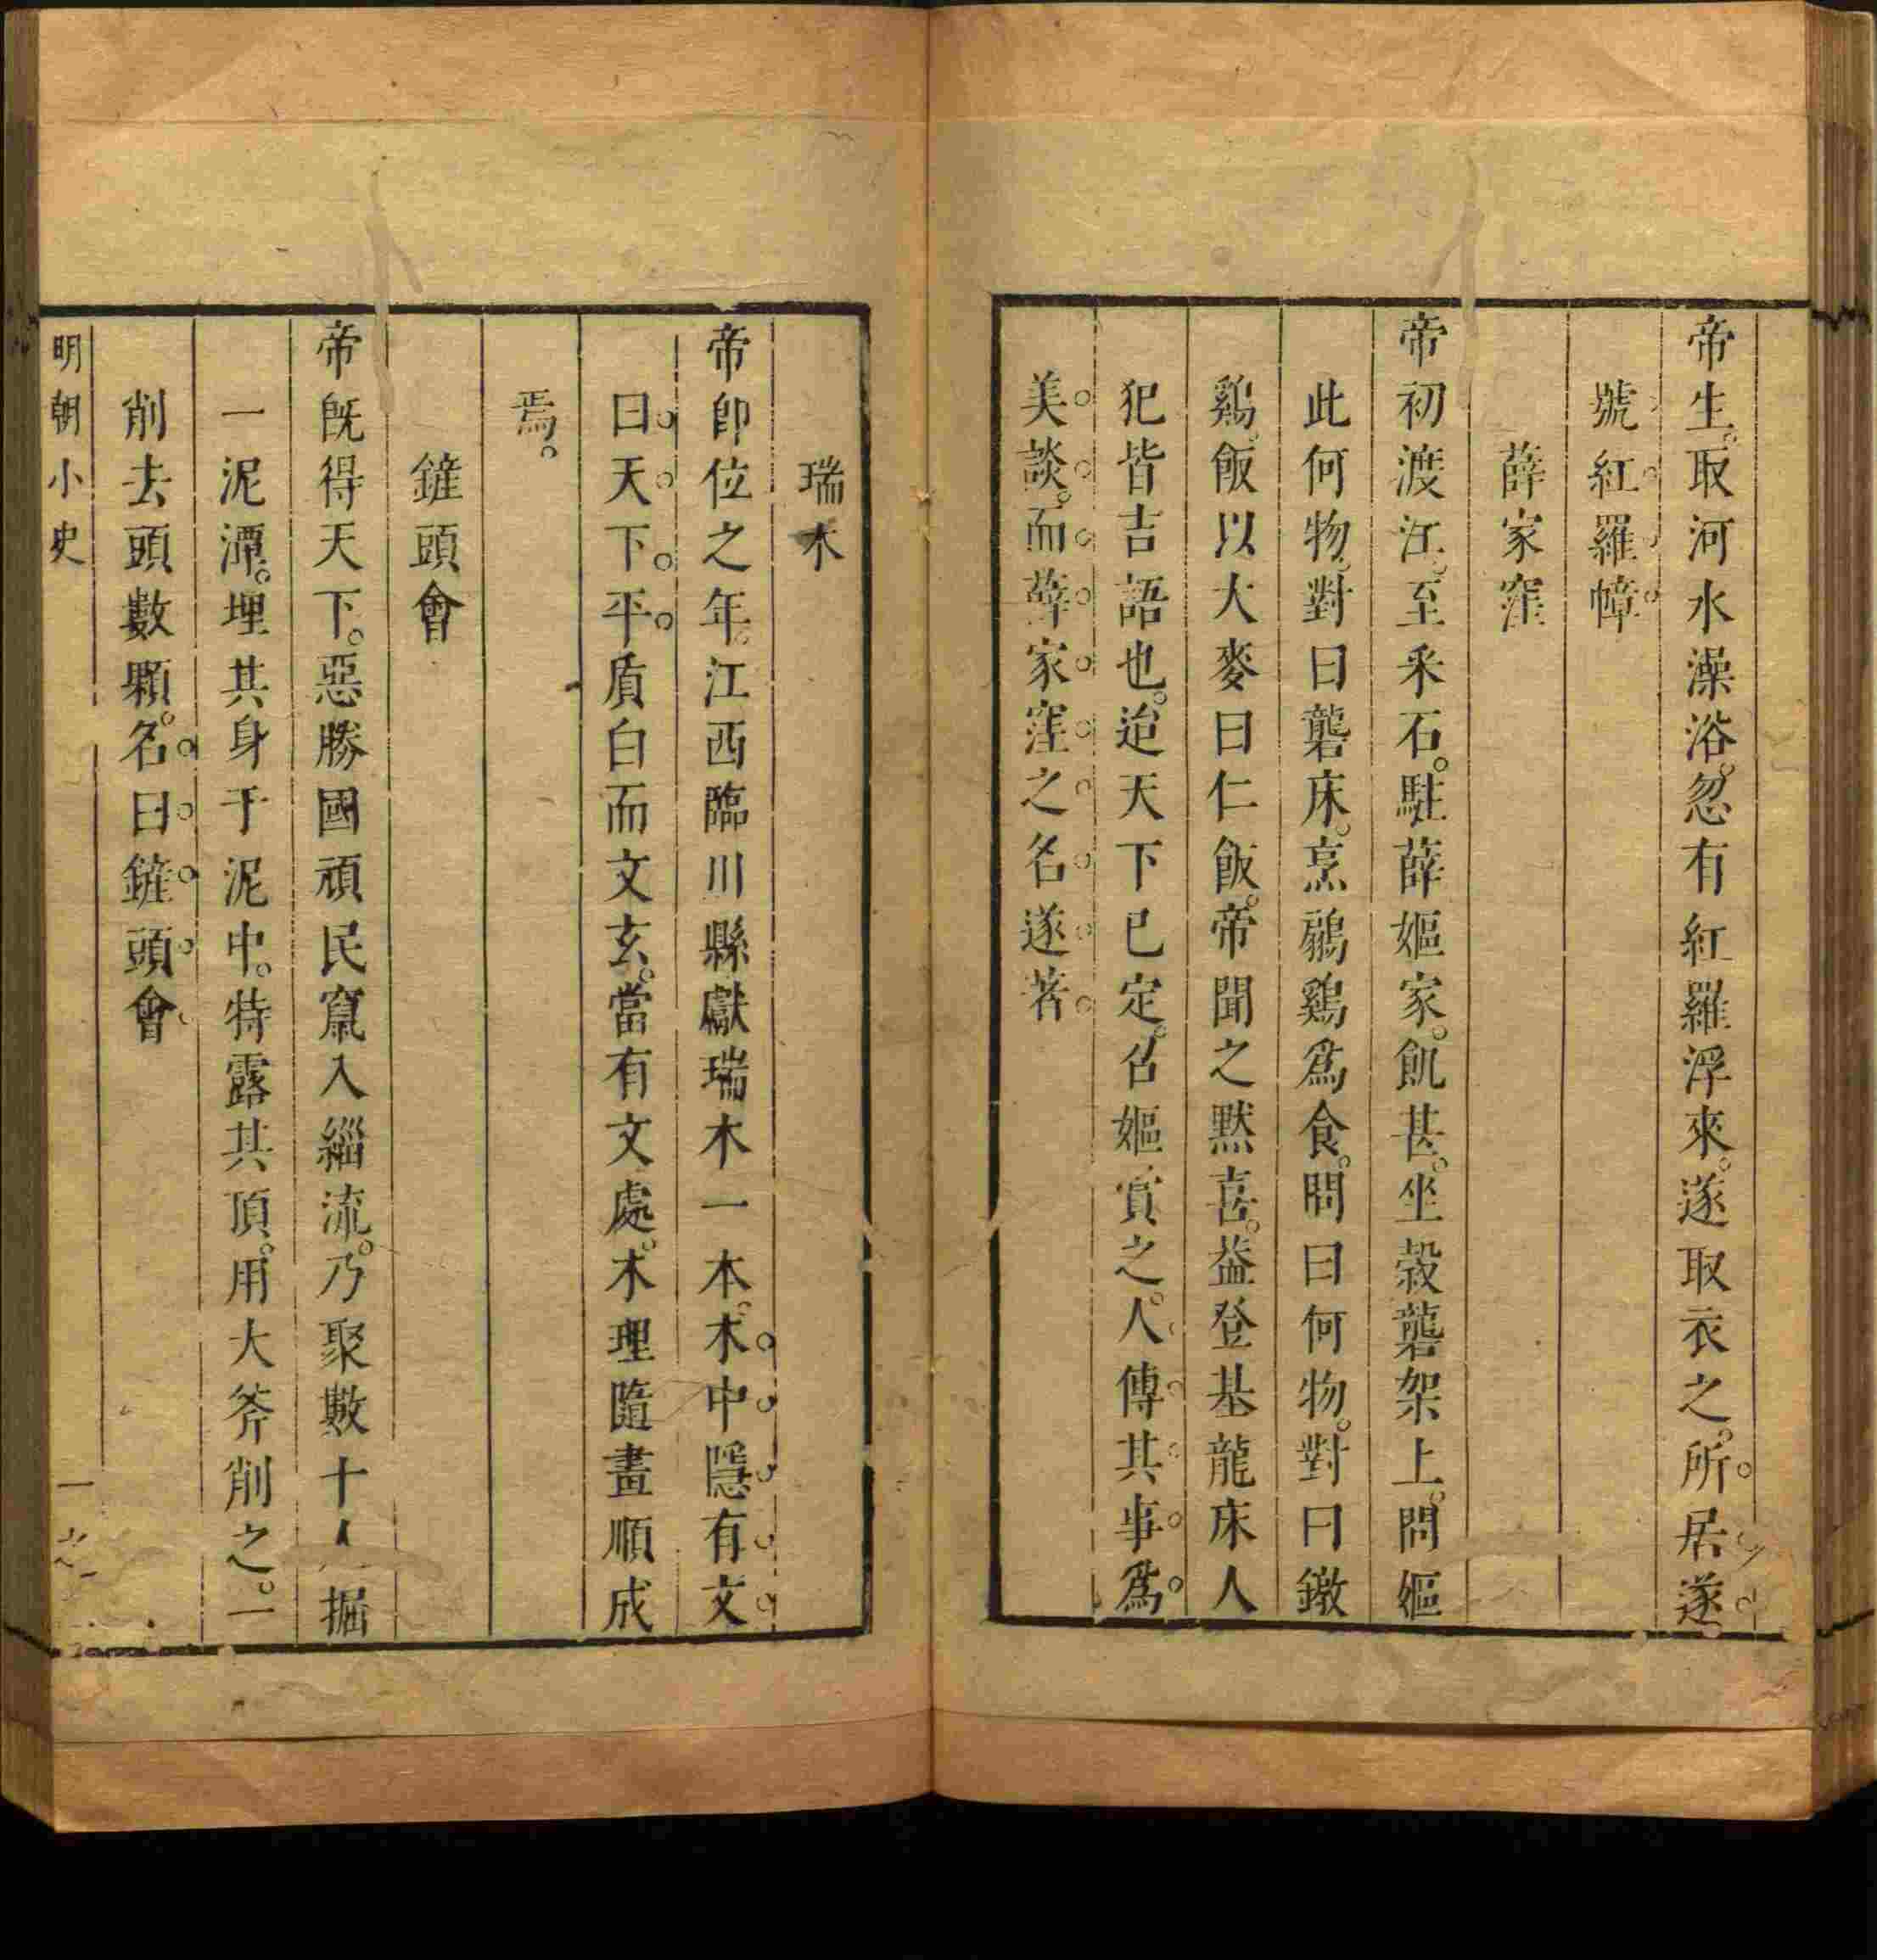 帝生。取河水澡浴。忽有紅羅浮來。遂取衣之。所居遂。
號紅羅幛
薛家窪
帝初渡江。至采石。駐薛嫗家。飢甚。坐穀礱架上。問嫗
此何物。對曰礱床。烹鵝鷄爲食。問曰何物。對曰鐓
鷄。飯以大麥曰仁飯。帝聞之黙喜。益登基龍床人
犯皆吉語也。迨天下已定。召嫗賞之。人傳其事爲
美談。而薛家窪之名遂著
瑞木
帝卽位之年。江西臨川縣獻瑞木一本。木中隱有文
曰天下平。質白而文玄。當有文處。木理隨畫順成
焉。
鏟頭會
帝旣得天下。惡勝國頑民竄入緇流。乃聚數十人掘
一泥潭。埋其身于泥中。特露其頂。用大斧削之。一
削去頭數顆。名曰鏟頭會
明朝小史 一